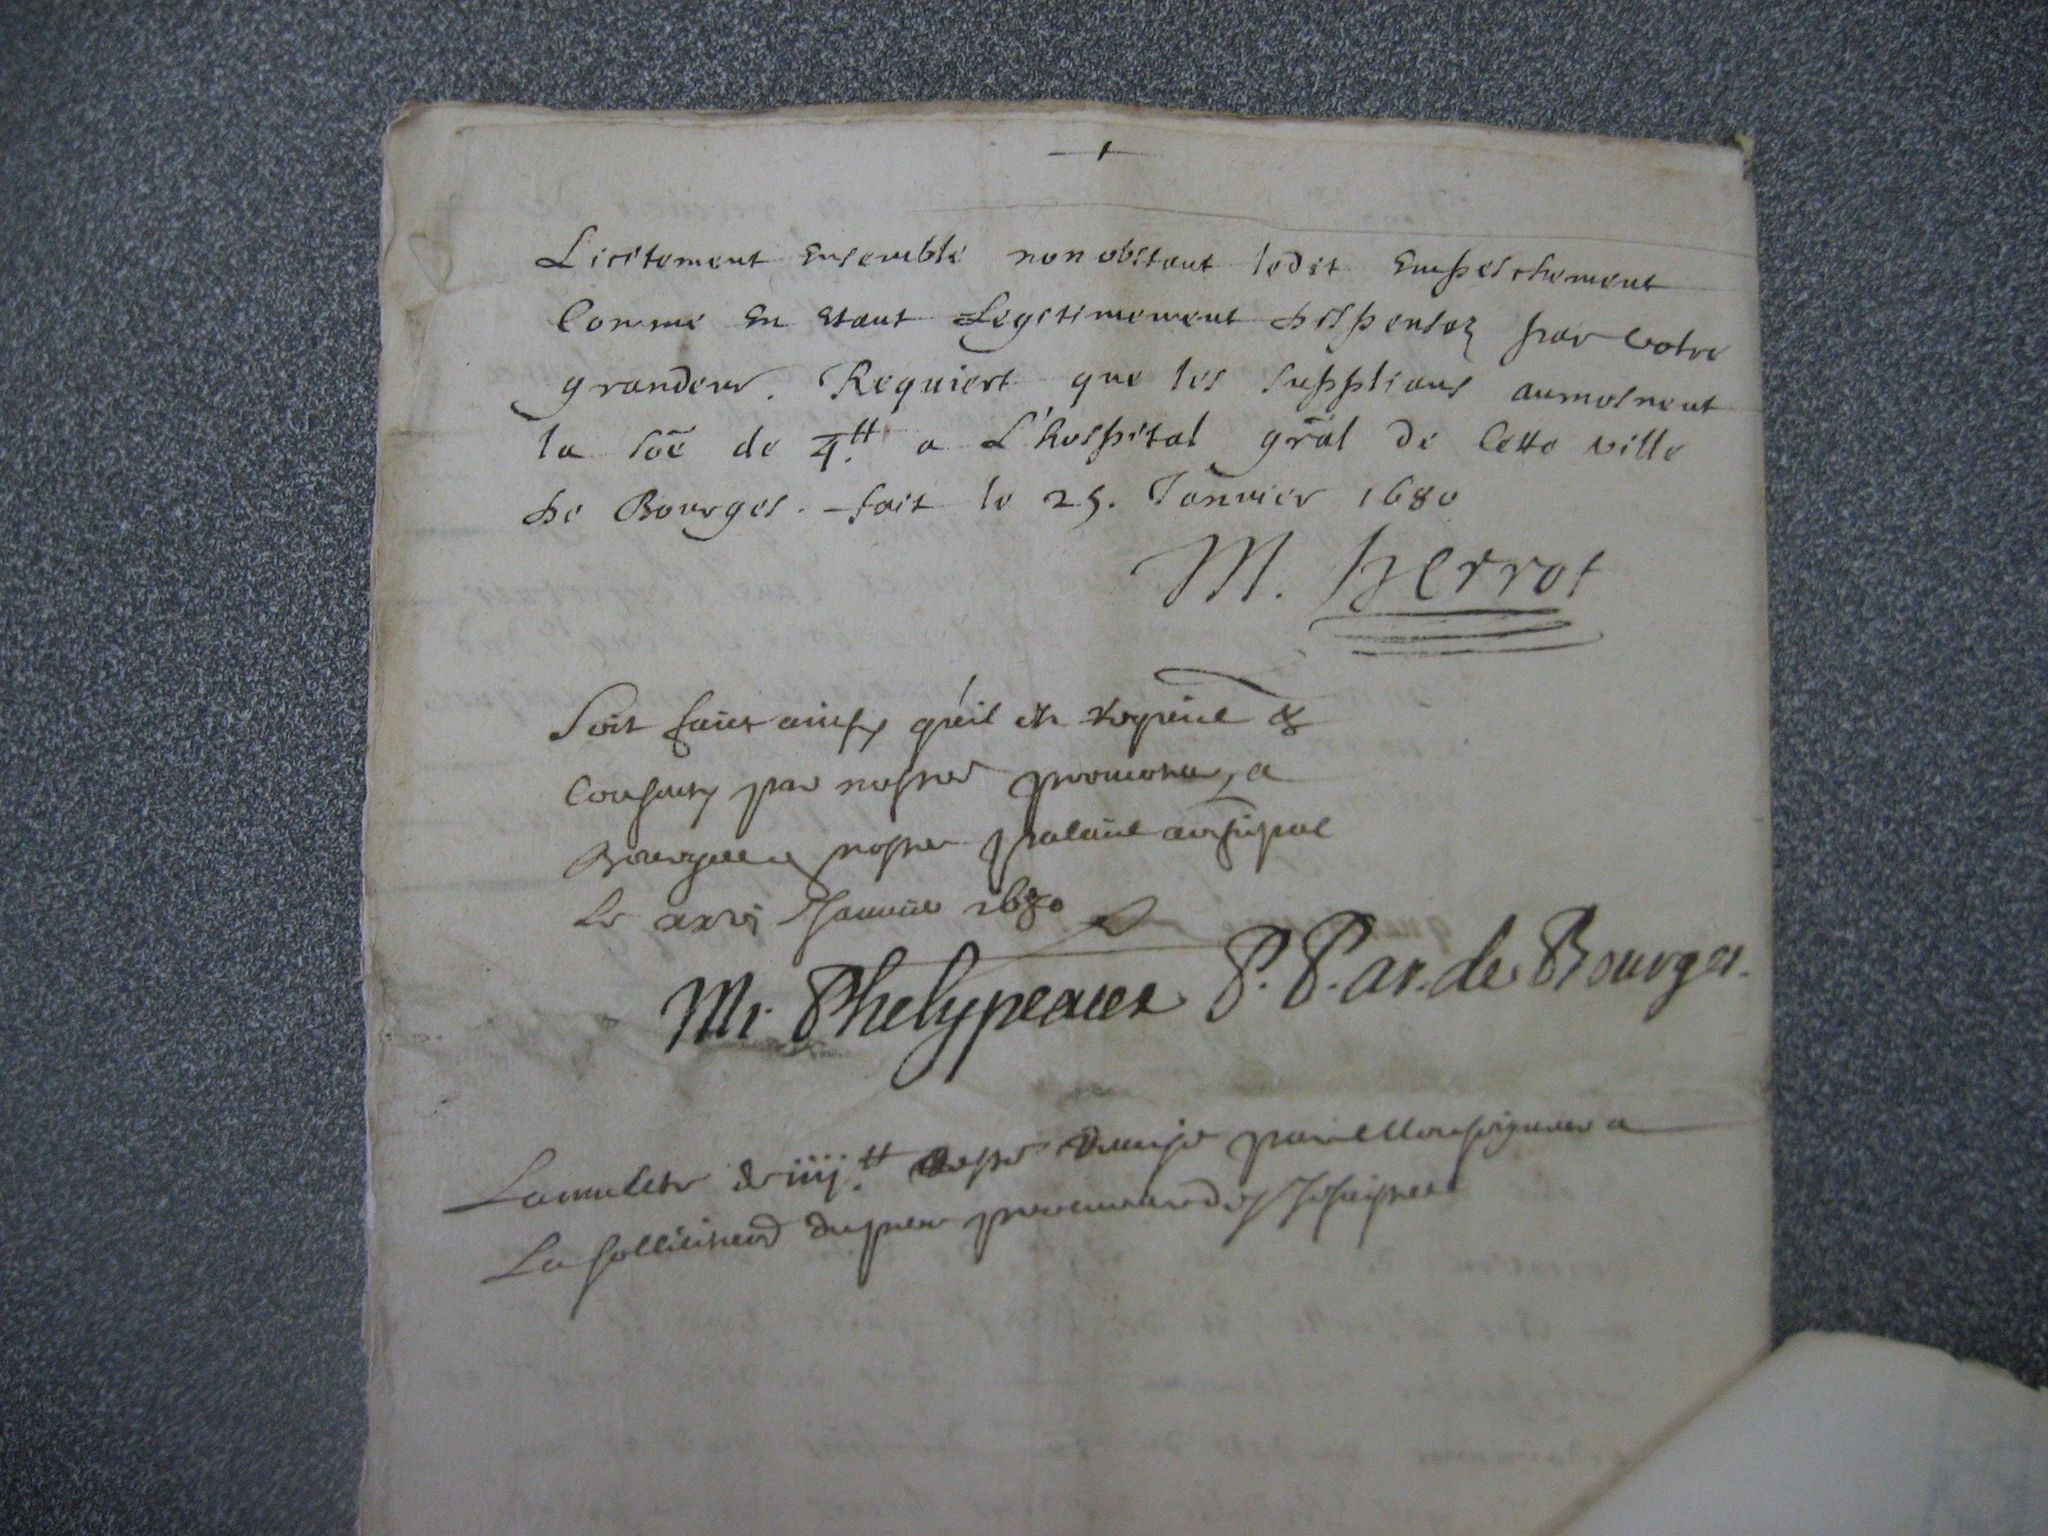 Licitement ensemble nonobstant ledit empeschement
Comme en estant Legitimement dispensez par votre
grandeur. Requiert que les supplians aumosnent
la sõe de 4.tt a L'hospital gñal de Cette ville
de Bourges. fait le 25. Janvier 1680
M. perrot
Soit fait ainsy qu'il est requis &
Consenty par nostre promoteur, a
Bourges en nostre palais archiepal
Le xxvj Janvier 1680
M. Phelypeaux P. P. ar. de Bourges.
Lamulcte de iiij.tt remise par Monseigneur a
La sollicitation du pere procureur des Jesuistes